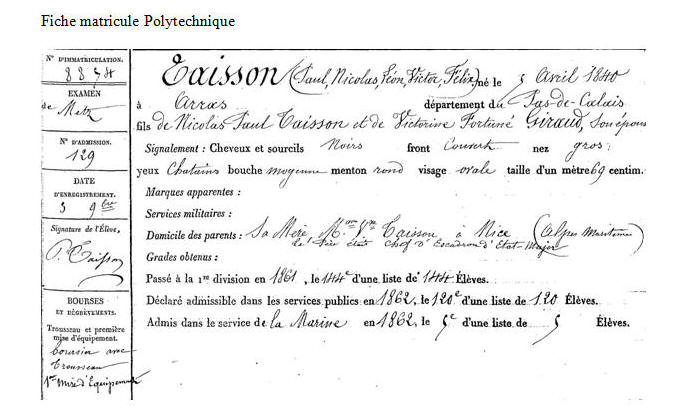 Fiche matricule Polytechnique
N° D'IMMATRICULATION.
8874
EXAMEN
de Metz
N° D'ADMISSION.
129
DATE
D'ENREGISTREMENT.
3 9bre
Signature de l'Élève,
P. Taisson
BOURSES
ET DÉGRÈVEMENTS.
Trousseau et première
mise d'équipement.
boursier avec
trousseau
1re mise d'Équipement
Taisson (Paul, Nicolas, Léon, Victor, Félix) né le 5 Avril 1840
à Arras département du Pas-de-Calais
fils de Nicolas Paul Taisson et de Victorine Fortuné Giraud, son épouse
Signalement : Cheveux et sourcils Noirs front Couvert nez gros
yeux Chatains bouche moyenne menton rond visage ovale taille d'un mètre 69 centim.
Marques apparentes :
Services militaires :
Domicile des parents : Sa Mère Mme Vve Taisson à Nice (Alpes Maritimes)
le Père était Chef d'Escadron d'Etat-Major
Grades obtenus :
Passé à la 1re division en 1861, le 144e d'une liste de 144 Élèves.
Déclaré admissible dans les services publics en 1862, le 120e d'une liste de 120 Élèves.
Admis dans le service de la Marine en 1862, le 5e d'une liste de 5 Élèves.